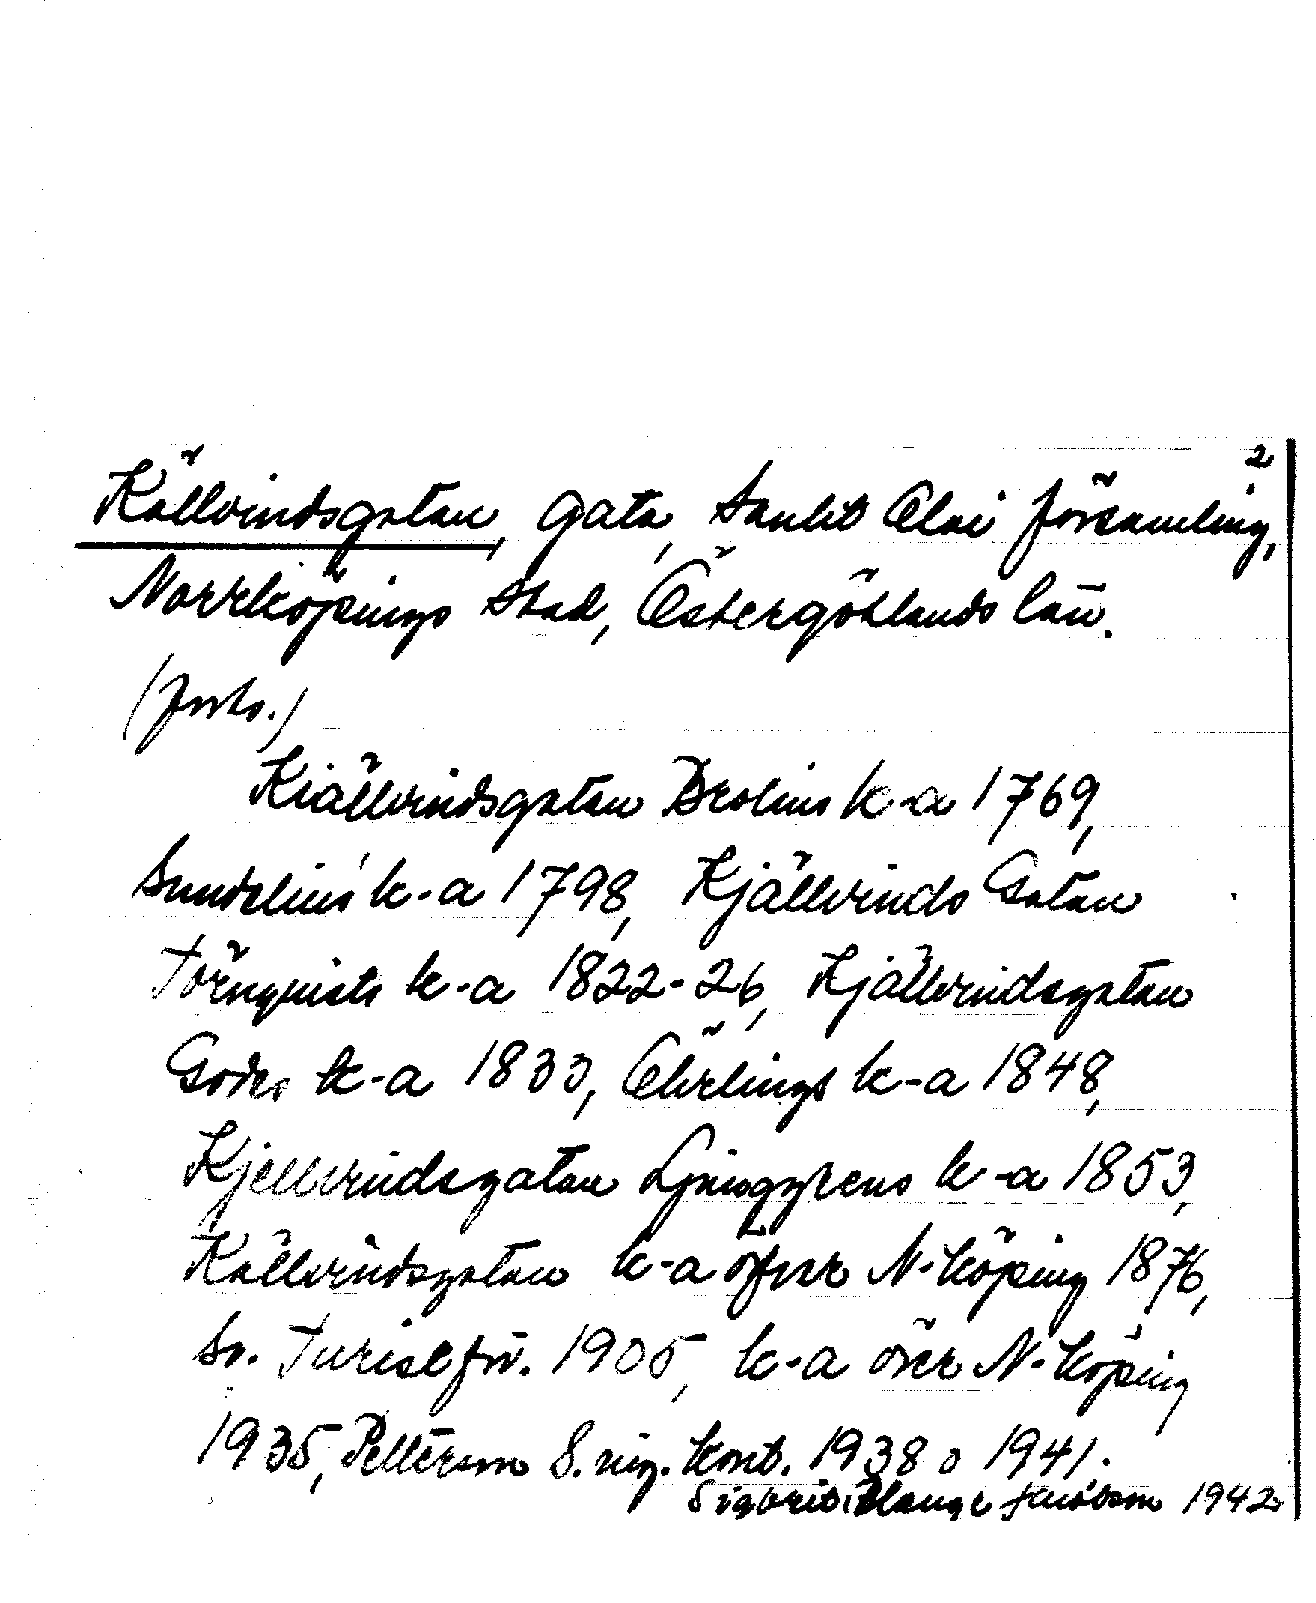 2
Källvindsgatan, gata, Sankt Olai församling,
Norrköpings stad, Östergötlands län.
(forts.)
Kiällvindsgatan Brolins k-a 1769,
Sundelius' k-a 1798, Kjällvinds Gatan
Törnquists k-a 1822-26, Kjällvindsgatan
Godes k-a 1833, Öhrlings k-a 1848,
Kjellvindsgatan Ljunggrens k-a 1853,
Källvindsgatan k-a öfver N-köping 1876,
Sv. Turistför. 1905, k-a över N-köping
1935, Petterson S. ing. kont. 1938 o 1941.
1942